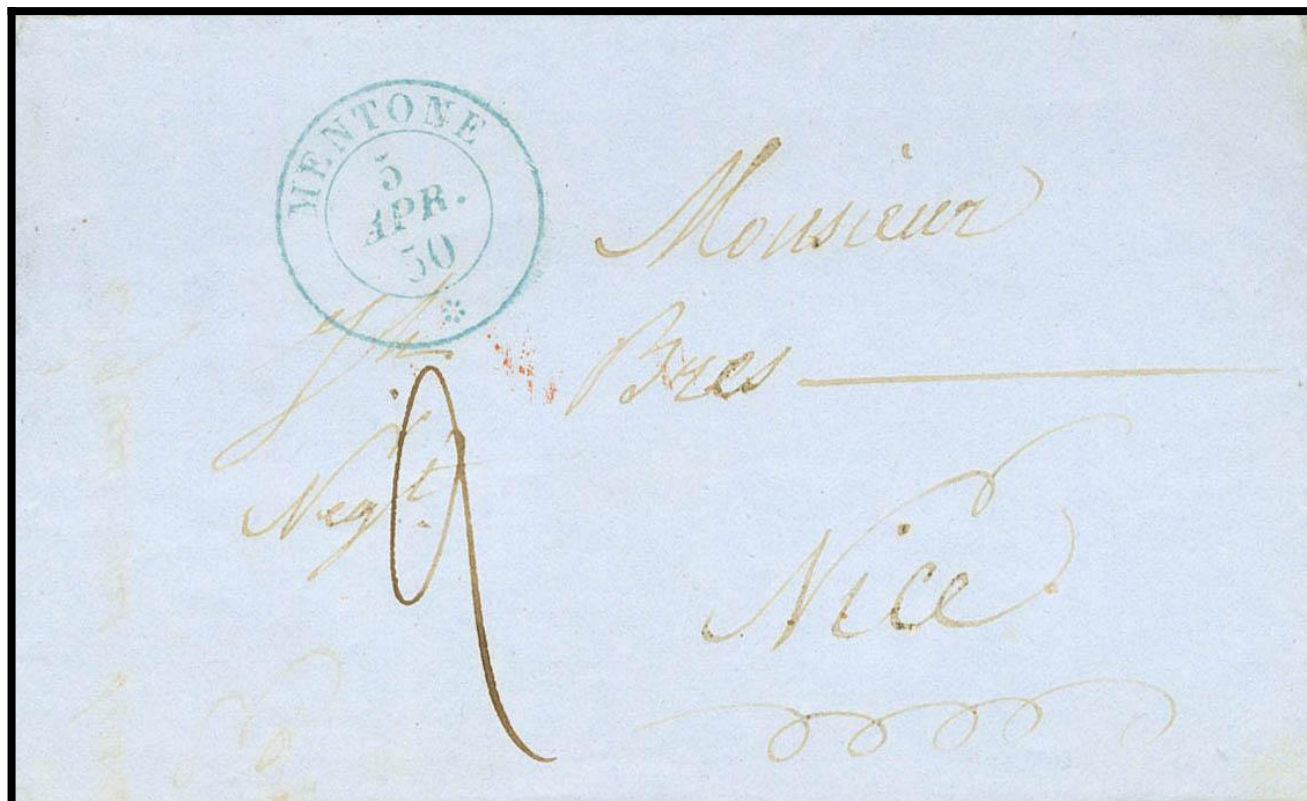 MENTONE
5
APR.
50
Monsieur
Jh Bres
Negt.
Nice